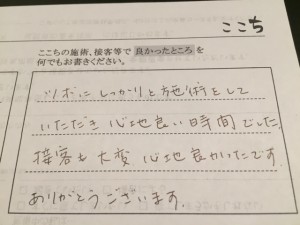 ここち
ここちの施術、接客等で良かったところを
何でもお書きください。
ツボにしっかりと施術をして
いただき心地良い時間でした。
接客も大変心地良かったです。
ありがとうございます。